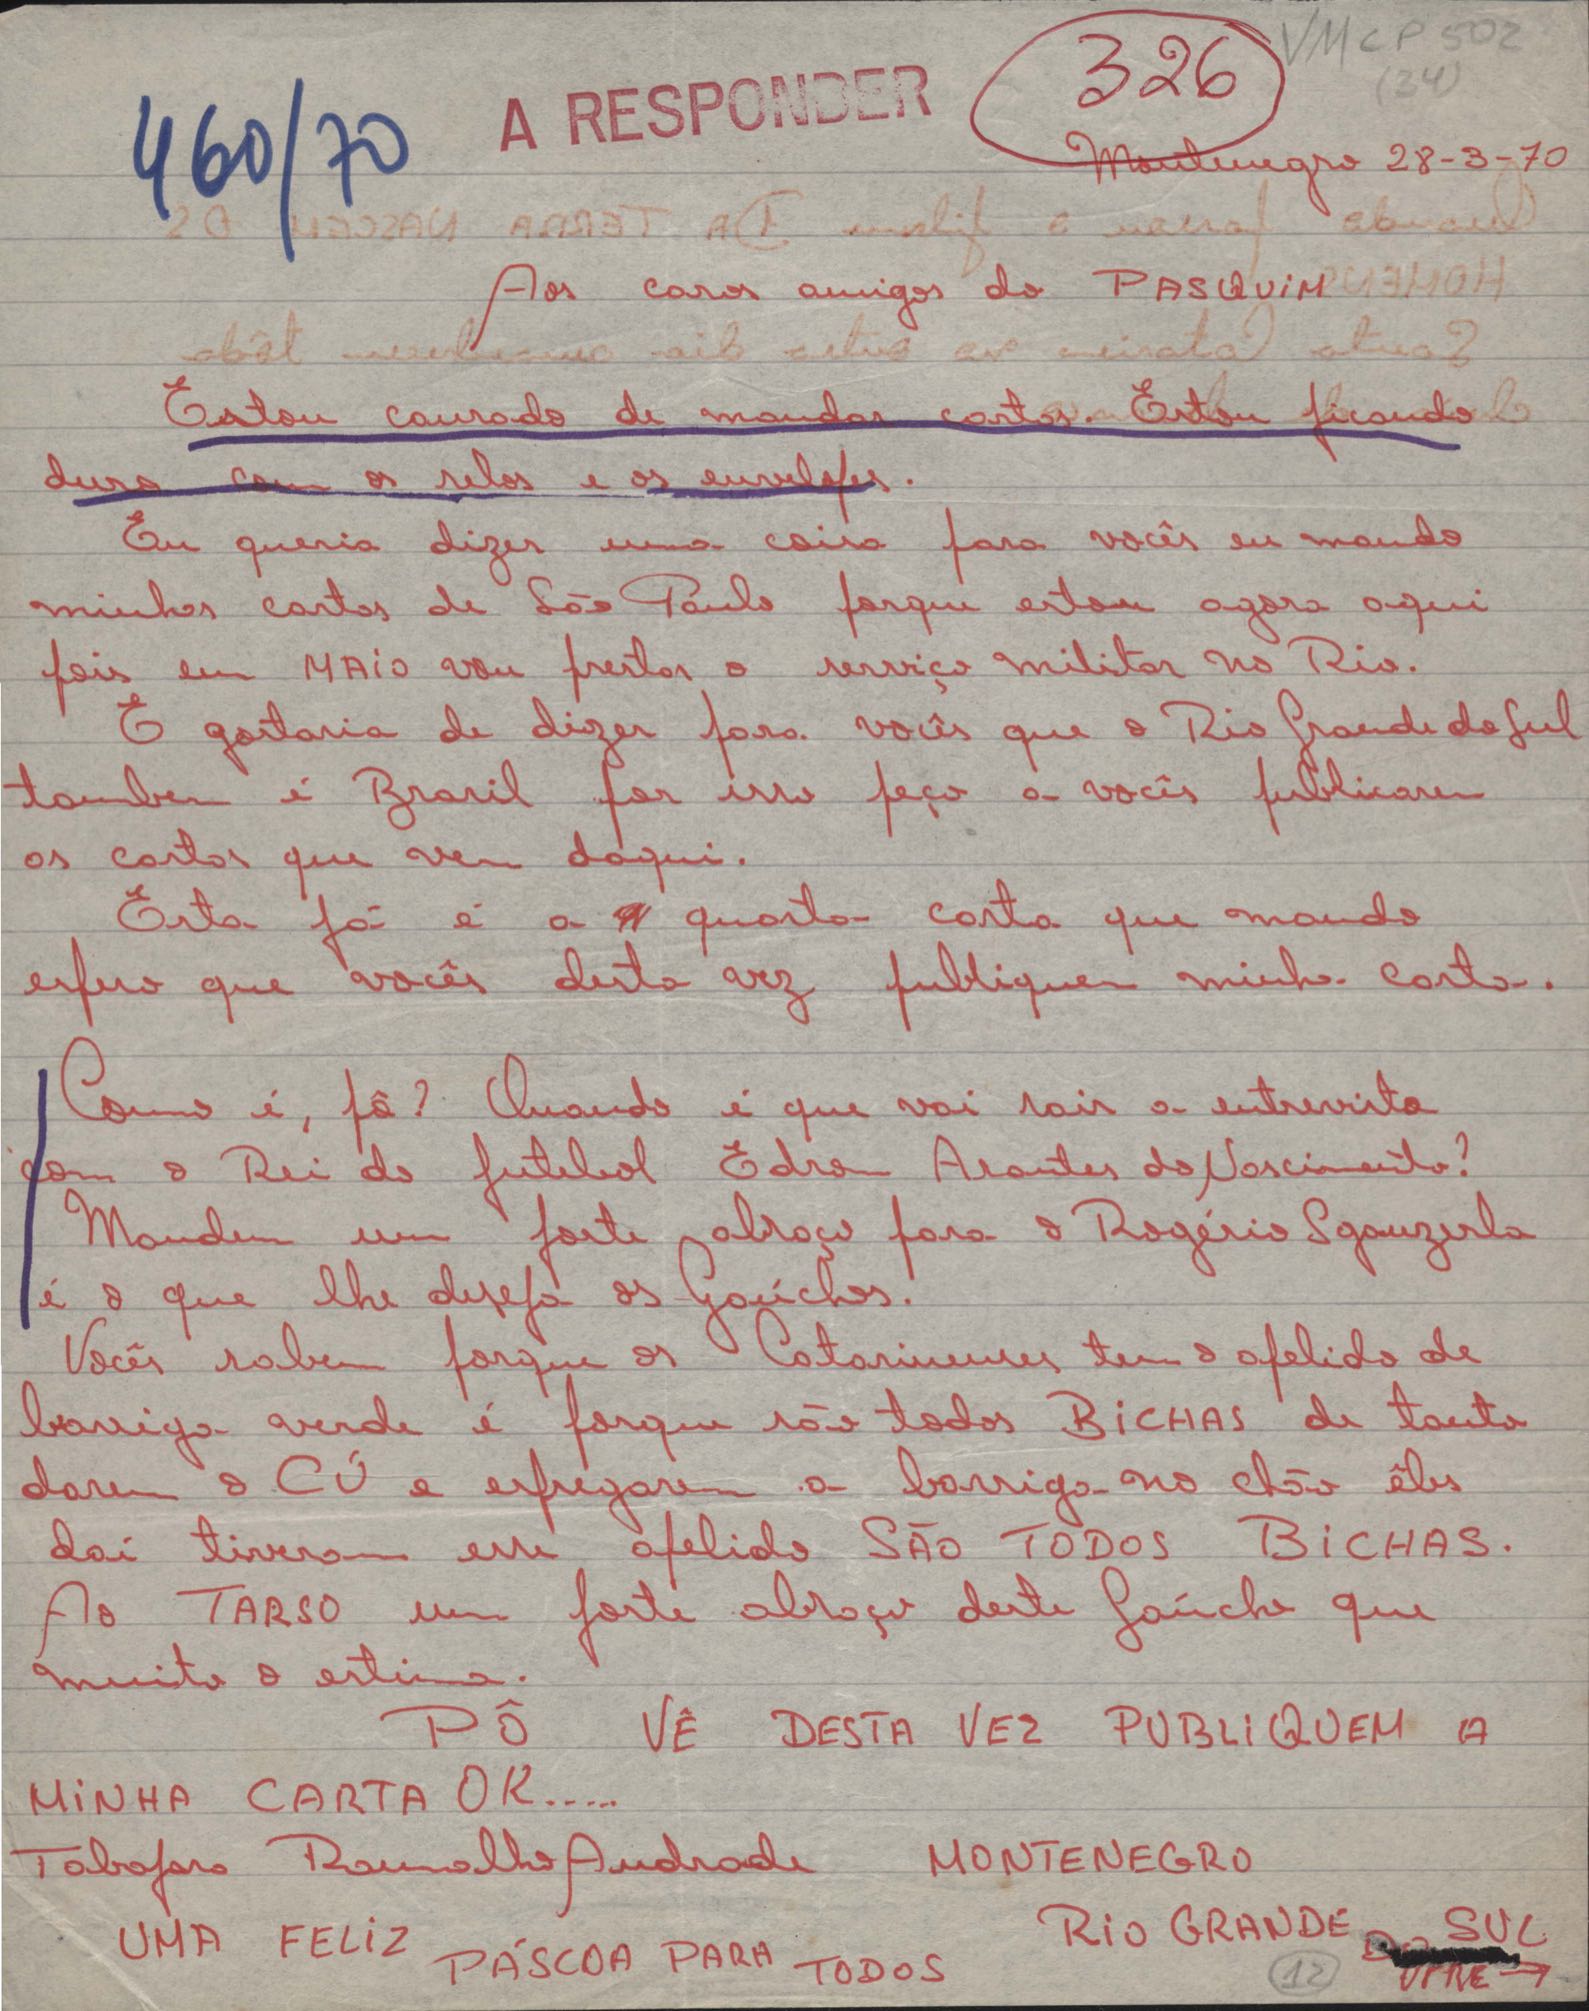 VMCP 502
(34)
326
A RESPONDER
460/70
Montenegro 28-3-70
Aos caros amigos do PASQUIM
Estou cansado de mandar cartas. Estou ficando
duro com os selos e os envelopes.
Eu queria dizer uma coisa para vocês eu mando
minhas cartas de São Paulo porque estou agora aqui
pois em MAIO vou prestar o serviço militar no Rio.
E gostaria de dizer para vocês que o Rio Grande do Sul
tambem é Brasil por isso peço a vocês publicarem
as cartas que vem daqui.
Esta já é a quarta carta que mando
espero que vocês desta vez publiquem minha carta.
Como é, pô? Quando é que vai sair a entrevista
com o Rei do futebol Edson Arantes do Nascimento?
Mandem um forte abraço para o Rogério Sganzerla
é o que lhe deseja os Gaúchos.
Vocês sabem porque os Catarinenses tem o apelido de
barriga verde é porque são todos BICHAS de tanto
darem o CÚ e esfregarem a barriga no chão êles
daí tiveram esse apelido SÃO TODOS BICHAS.
Ao TARSO um forte abraço deste Gaúcho que
muito o estima.
PÔ VÊ DESTA VEZ PUBLIQUEM A
MINHA CARTA OK.....
Tabajara Ramalho Andrade MONTENEGRO
RIO GRANDE DO SUL
UMA FELIZ PÁSCOA PARA TODOS
(12) VIRE →